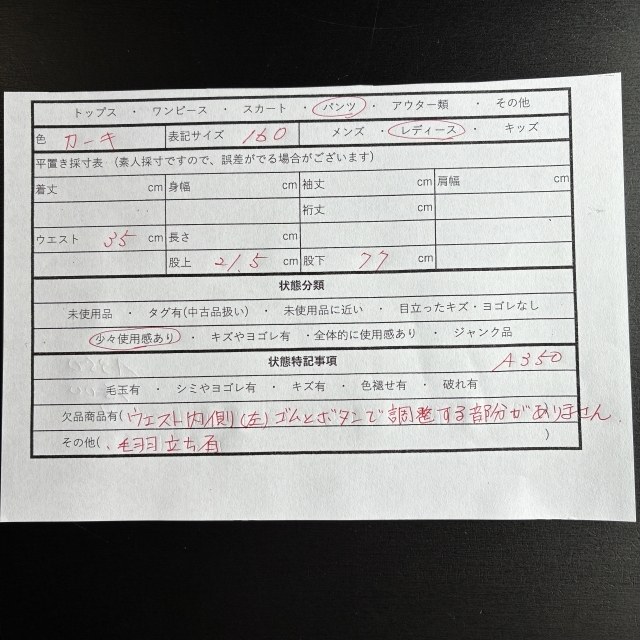 トップス ・ ワンピース ・ スカート ・ パンツ ・ アウター類 ・ その他
色 カーキ 表記サイズ 160 メンズ ・ レディース ・ キッズ
平置き採寸表 (素人採寸ですので、誤差がでる場合がございます)
着丈 cm 身幅 cm 袖丈 cm 肩幅 cm
裄丈 cm
ウエスト 35 cm 長さ cm
股上 21.5 cm 股下 77 cm
状態分類
未使用品 ・ タグ有(中古品扱い) ・ 未使用品に近い ・ 目立ったキズ・ヨゴレなし
少々使用感あり ・ キズやヨゴレ有 ・全体的に使用感あり ・ ジャンク品
状態特記事項 A350
毛玉有 ・ シミやヨゴレ有 ・ キズ有 ・ 色褪せ有 ・ 破れ有
欠品商品有(ウエスト内側(左)ゴムとボタンで調整する部分がありません
その他( 毛羽立ち有 )